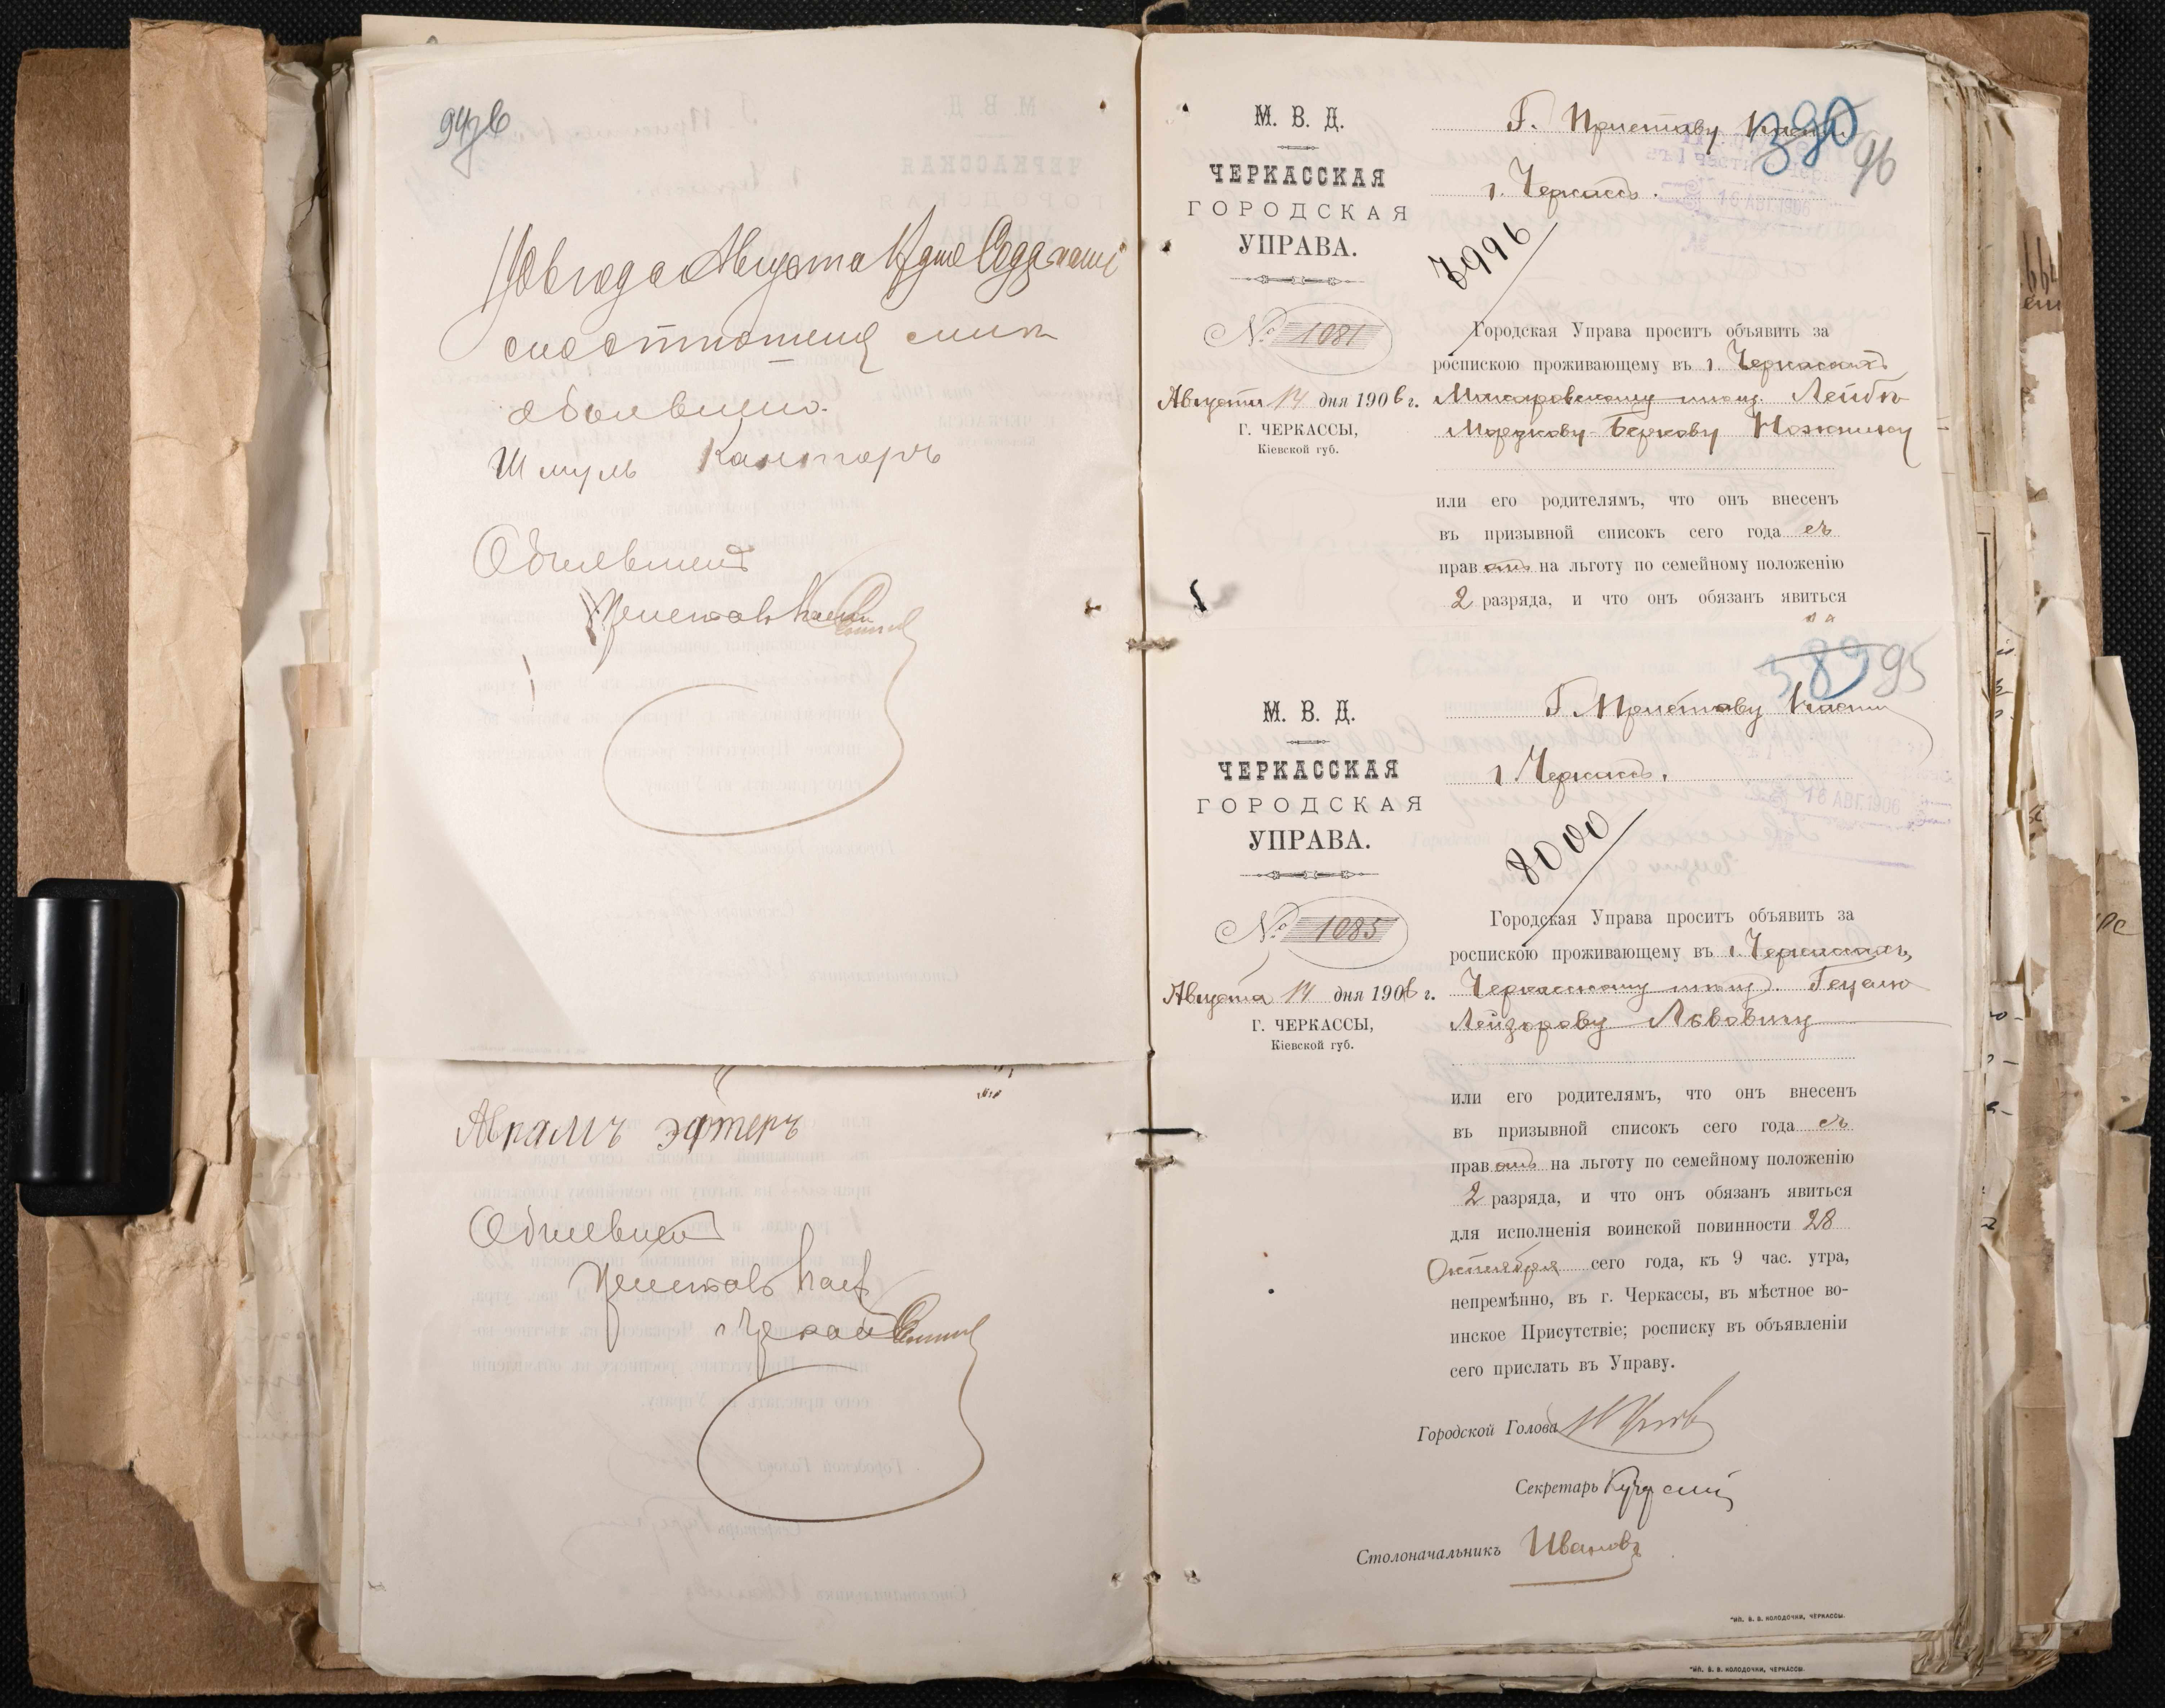 94 об
1906 года Августа дня
мнѣ
объявлено.
Шмуль Канторъ
Объявилъ
Приставъ
Аврамъ Эфтеръ
Объявилъ
Приставъ
М. В. Д.
ЧЕРКАССКАЯ
ГОРОДСКАЯ
УПРАВА.
№ 1081
Августа 14 дня 1906 г.
Г. ЧЕРКАССЫ,
Кіевской губ.
Г. Приставу Части
390
96
г. Черкассъ.
16 АВГ.1906
7996
Городская Управа проситъ объявить за
роспискою проживающему въ г. Черкассахъ
Макаровскому мѣщ. Лейбѣ
Мордкову-Беркову
или его родителямъ, что онъ внесенъ
въ призывной списокъ сего года съ
правомъ на льготу по семейному положенію
2 разряда, и что онъ обязанъ явиться
М. В. Д.
ЧЕРКАССКАЯ
ГОРОДСКАЯ
УПРАВА.
№ 1085
Августа 14 дня 1906 г.
Г. ЧЕРКАССЫ,
Кіевской губ.
389
95
Г. Приставу Части
г. Черкассъ.
16 АВГ.1906
8000
Городская Управа проситъ объявить за
роспискою проживающему въ г. Черкассахъ,
Черкасскому мѣщ. Гецелю
Лейзорову Львовичу
или его родителямъ, что онъ внесенъ
въ призывной списокъ сего года съ
правомъ на льготу по семейному положенію
2 разряда, и что онъ обязанъ явиться
для исполненія воинской повинности 28
Октября сего года, къ 9 час. утра,
непремѣнно, въ г. Черкассы, въ мѣстное во-
инское Присутствіе; росписку въ объявленіи
сего прислать въ Управу.
Городской Голова
Секретарь
Столоначальникъ Ивановъ
ТИП. В. В. КОЛОДОЧКИ, ЧЕРКАССЫ.
ТИП. В. В. КОЛОДОЧКИ, ЧЕРКАССЫ.